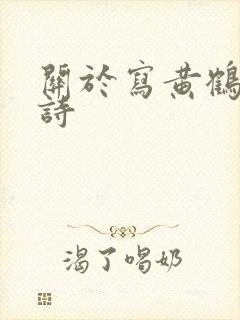 關於寫黃鶴
詩
渴了喝奶